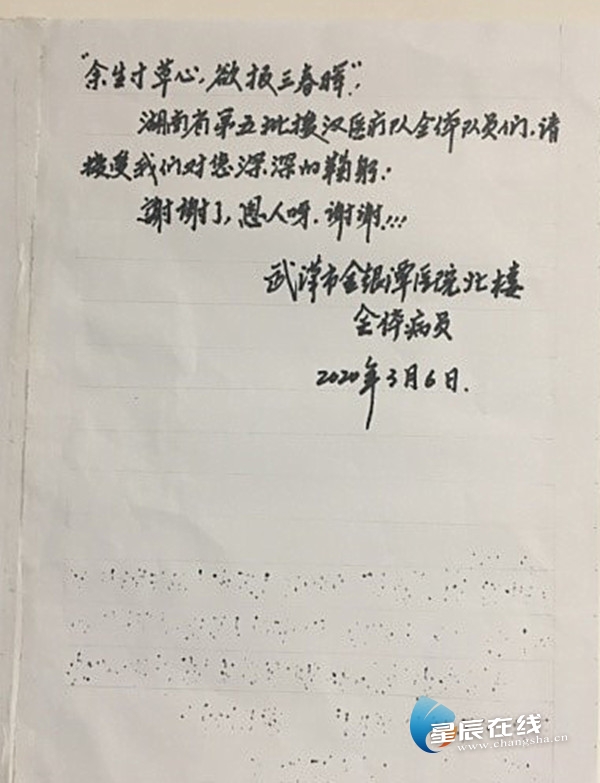 “余生寸草心,欲报三春晖”!
湖南省第五批援汉医疗队全体队员们,请
接受我们对您深深的鞠躬!
谢谢了,恩人呀,谢谢!!!
武汉市金银潭医院北楼
全体病员
2020年3月6日.
星辰在线
www.changsha.cn